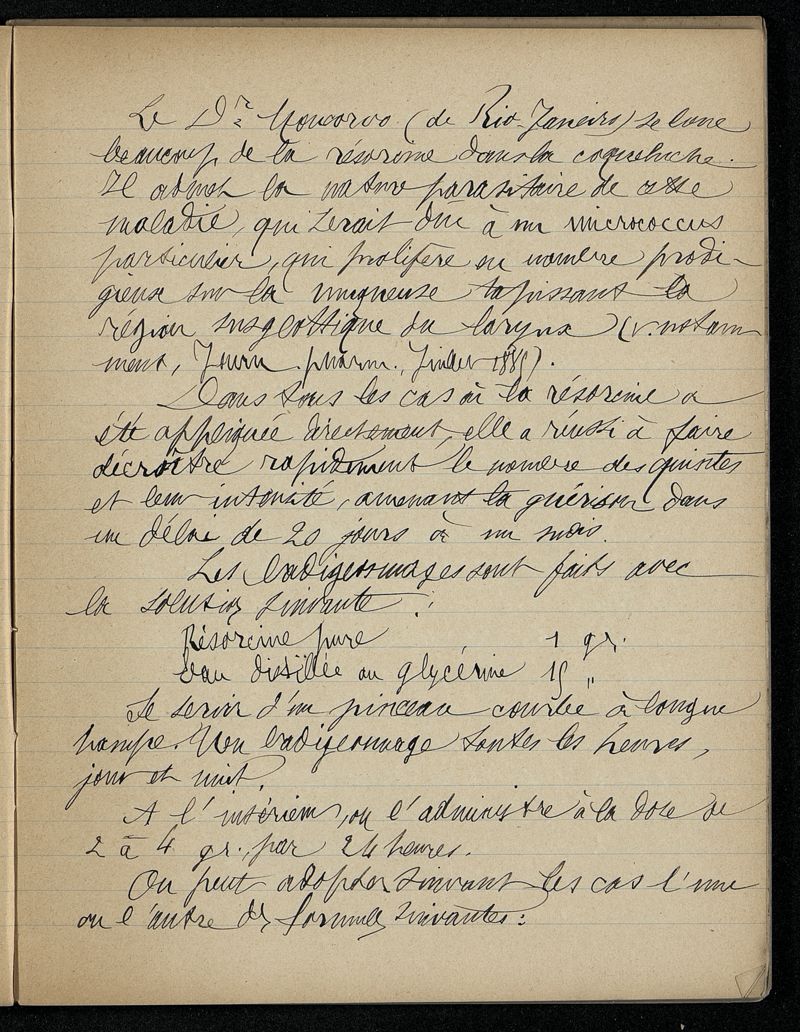 Le Dr Moncorvo (de Rio-Janeiro) se loue
beaucoup de la résorcine dans la coqueluche.
Il admet la nature parasitaire de cette
maladie, qui serait due à un micrococcus
particulier, qui prolifère en nombre prodi-
gieux sur la muqueuse tapissant la
région susglottique du larynx (v. notam-
ment, Journ. pharm., Juillet 1885).
Dans tous les cas où la résorcine a
été appliquée directement, elle a réussi à faire
décroître rapidement le nombre des quintes
et leur intensité, amenant la guérison dans
un délai de 20 jours à un mois.
Les badigeonnages sont faits avec
la solution suivante :
Résorcine pure 1 gr.
Eau distillée ou glycérine 15 "
Se servir d'un pinceau courbé à longue
hampe. Un badigeonnage toutes les heures,
jour et nuit.
A l'intérieur, on l'administre à la dose de
2 à 4 gr., par 24 heures.
On peut adopter suivant les cas l'une
ou l'autre des formules suivantes :